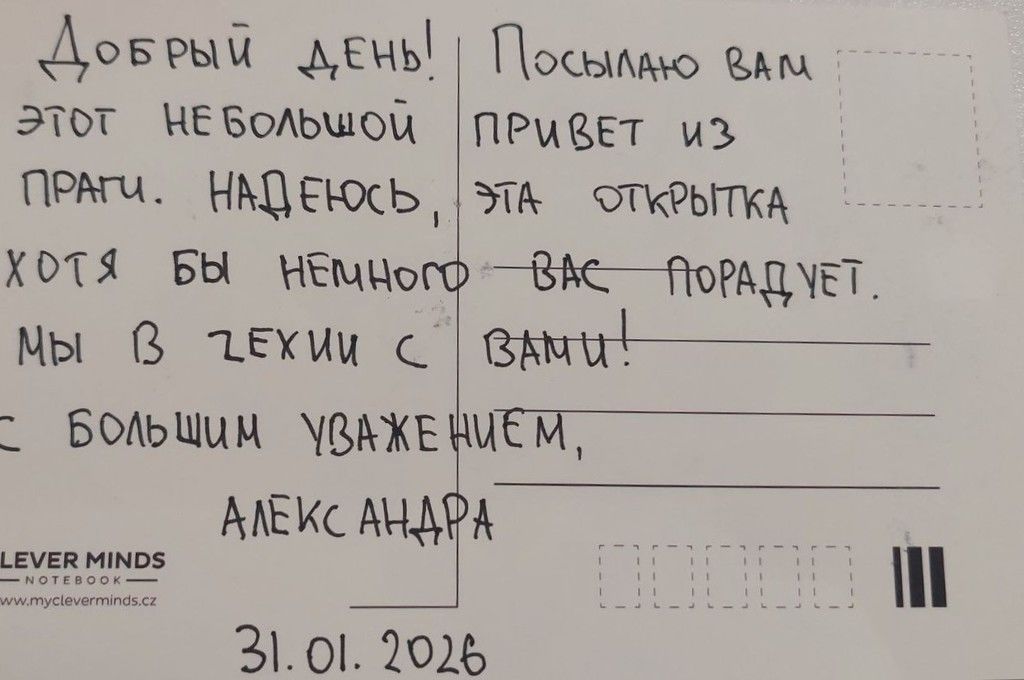 Добрый день! Посылаю вам
этот небольшой привет из
Праги. Надеюсь, эта открытка
хотя бы немного вас порадует.
Мы в Чехии с вами!
С большим уважением,
Александра
LEVER MINDS
NOTEBOOK
www.mycleverminds.cz
31.01.2026